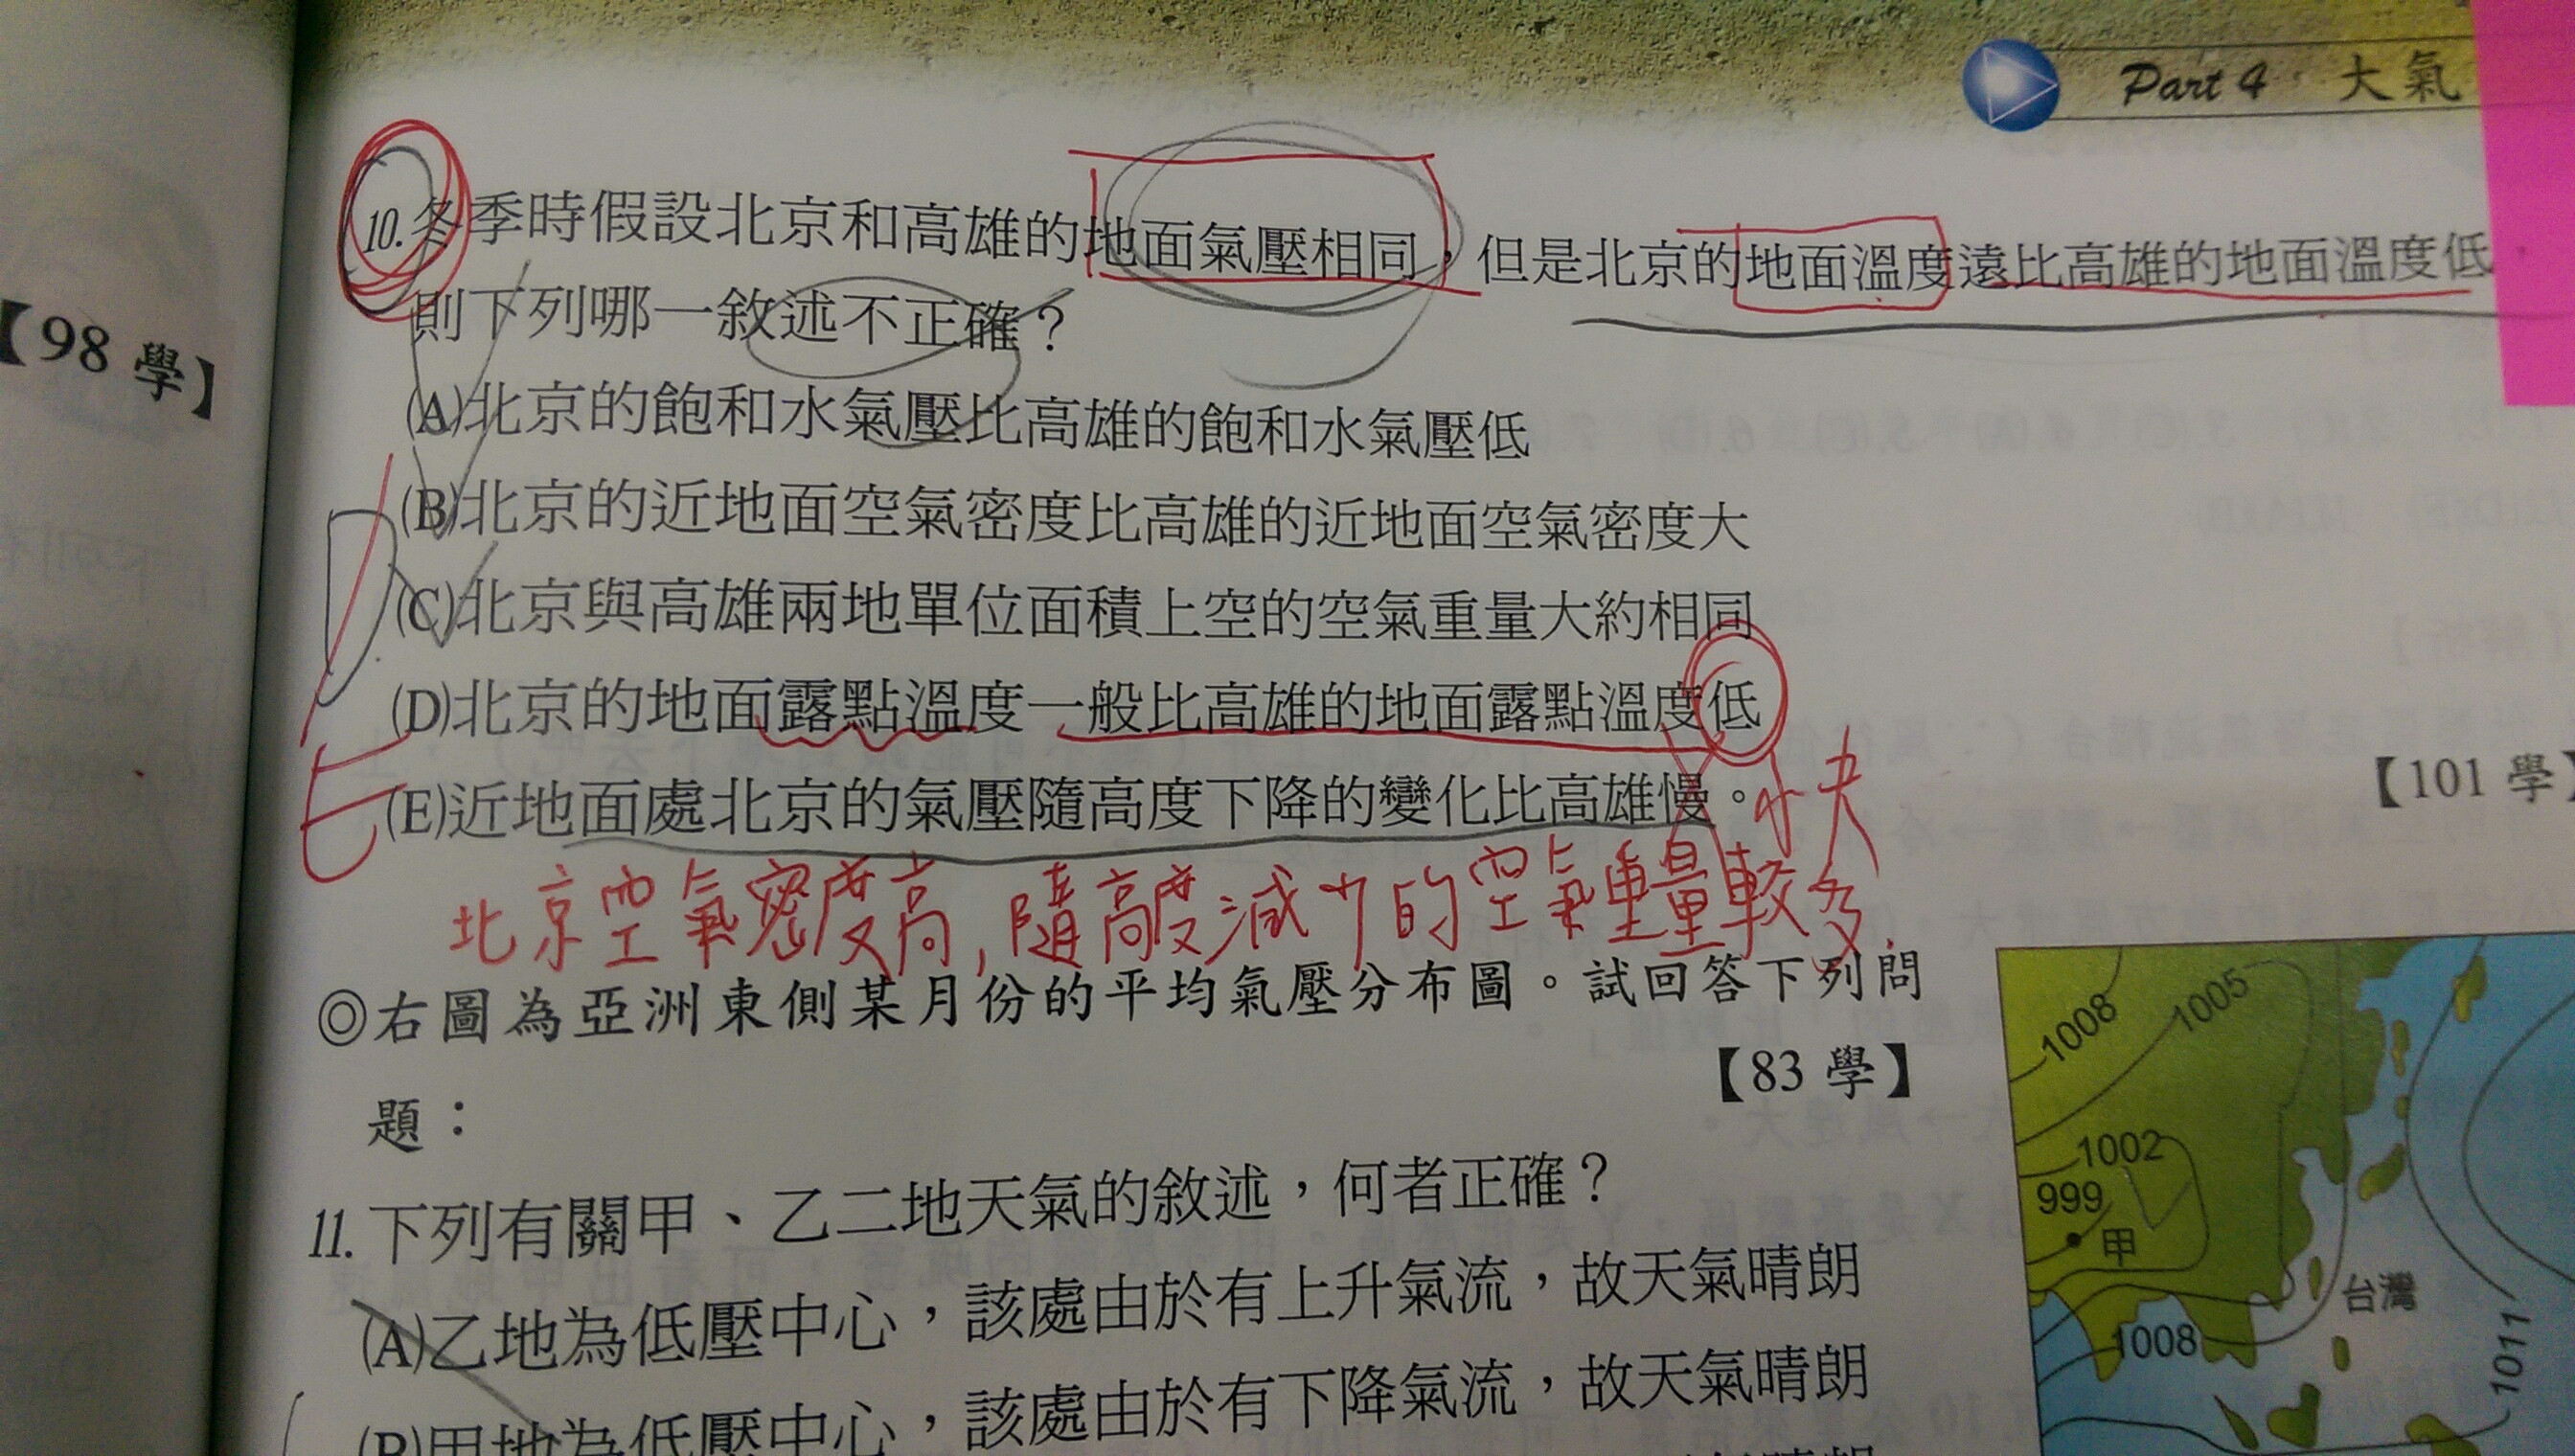 Part 4 大氣
10.冬季時假設北京和高雄的地面氣壓相同，但是北京的地面溫度遠比高雄的地面溫度低，
則下列哪一敘述不正確？
【98 學】
(A)北京的飽和水氣壓比高雄的飽和水氣壓低
(B)北京的近地面空氣密度比高雄的近地面空氣密度大
(C)北京與高雄兩地單位面積上空的空氣重量大約相同
D
(D)北京的地面露點溫度一般比高雄的地面露點溫度低
【101 學】
E
(E)近地面處北京的氣壓隨高度下降的變化比高雄慢。
快
北京空氣密度高,隨高度減少的空氣重量較多
◎右圖為亞洲東側某月份的平均氣壓分布圖。試回答下列問
題：
【83 學】
11.下列有關甲、乙二地天氣的敘述，何者正確？
(A)乙地為低壓中心，該處由於有上升氣流，故天氣晴朗
(B)甲地為低壓中心，該處由於有下降氣流，故天氣晴朗
1008
1005
1002
999
甲
台灣
1008
1011